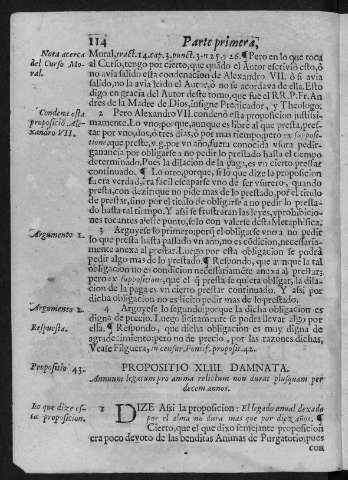 114 Parte primera,
Nota acerca del Curso Moral.
Moral, tract. 14. cap. 3. punct. 3. n. 25. y 26. ¶ Pero en lo que toca
al Curso, tengo por cierto, que quãdo el Autor escrivió esto, ó
no avia salido esta condenacion de Alexandro VII. ò si avia
salido, no la avia leido el Autor, ò no se acordava de ella. Esto
digo en gracia del Autor deste tomo, que fue el RR. P. Fr. An-
dres de la Madre de Dios, insigne Predicador, y Theologo.
Condena esta proposició Alexandro VII.
2 Pero Alexandro VII. condenó esta proposicion justissi-
mamente. Lo vno porque, aunque es libre al que presta, pres-
tar por vno, dos, ò tres dias, ò por mas tiempo, pero ex suposi-
tione, que preste, v.g. por vn año, fuera conocida vsura pedir
ganancia por obligarse a no pedir lo prestado hasta el tiempo
determinado. Pues la dilacion de la paga, es vn cierto prestar
continuado. ¶ Lo otro, porque, si lo que dize la proposicion
fuera verdad, era facil escaparse vno de ser vsurero, quando
presta, con dezir que no pide mas de lo prestado, por el titulo
de prestar, sino por el titulo de obligarse a no pedir lo presta-
do hasta tal tiempo. Y assi se frustraran las leyes, y prohibicio-
nes tocantes a este punto, solo con valerse desta Metaphisica.
Argumento 1.
3 Arguyese lo primero; pero el obligarse vno a no pedir
lo que presta hasta passado vn año, no es cõdicion, necessaria-
mente anexa al prestar. Luego por esta obligacion se podrà
pedir algo mas de lo prestado. ¶ Respondo, que aunque la tal
obligacion no es condicion necessariamẽte anexa al prestar;
pero ex suppositione, que el que presta se quiera obligar, la di-
lacion de la paga es vn cierto prestar continuado. Y assi, por
dicha obligacion no es licito pedir mas de lo prestado.
Argumento 2.
4 Arguyese lo segundo: porque la dicha obligacion es
digna de precio. Luego licitamente se podrà llevar algo por
Respuesta.
ella. ¶ Respondo, que dicha obligacion es muy digna de
agradecimiento; pero no de precio, por las razones dichas,
Vease Filguera, in censur. Pontif. proposit. 42.
Propositio 43.
PROPOSITIO XLIII. DAMNATA.
Annuum legatum pro anima relictum non durat plusquam per
decem annos.
Lo que dize esta proposicion.
1 DIZE Assi la proposicion: El legado anual dexado
por el alma no dura mas que por diez años. ¶
Cierto, que el que dixo semejante proposicion
era poco devoto de las benditas Animas de Purgatorio; pues
con